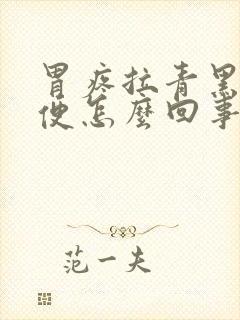 胃疼拉青黑
便怎麼回事
范一夫